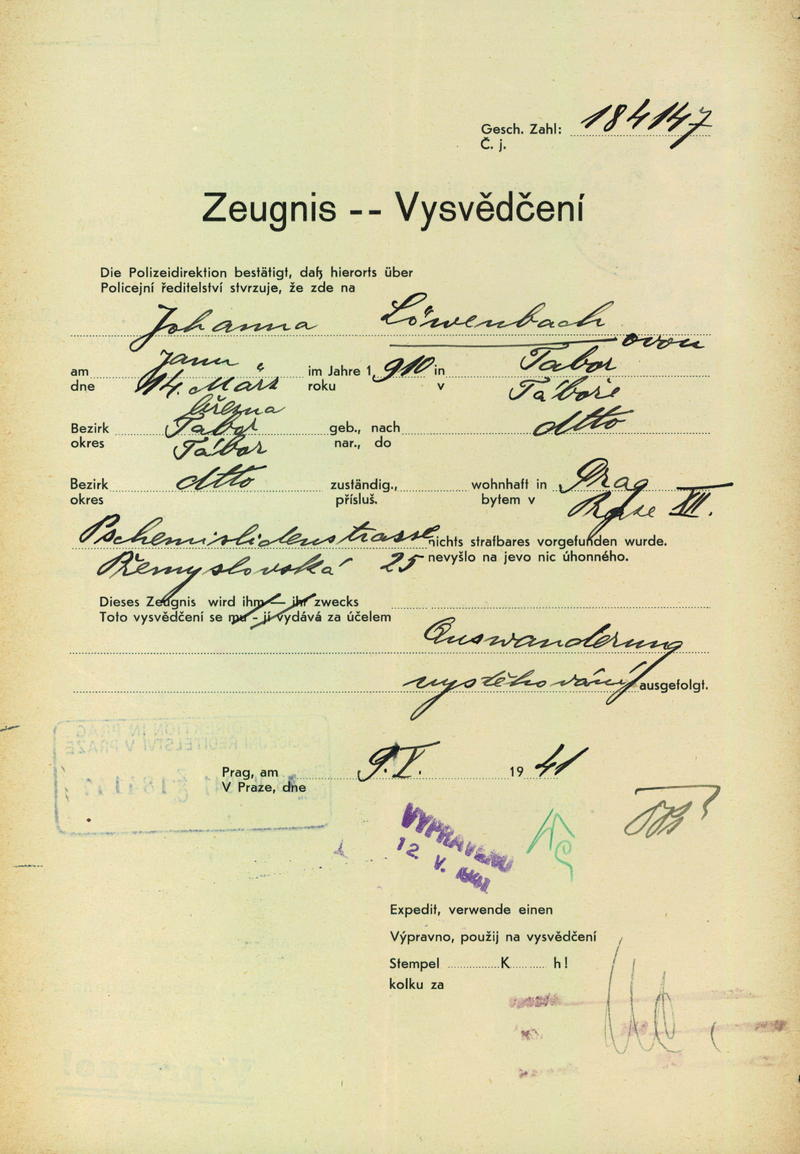 Gesch. Zahl: 184147
Č. j.
Zeugnis -- Vysvědčení
Die Polizeidirektion bestätigt, daß hierorts über
Policejní ředitelství stvrzuje, že zde na
Johanna Löwenbach
ovou
am 14. März im Jahre 1 910 in Tabor
dne března roku v Táboře
Bezirk Tabor geb., nach dtto
okres Tábor nar., do
Bezirk dtto zuständig., wohnhaft in Prag
okres přísluš. bytem v Praze XII.
Pschemislidenstrasse nichts strafbares vorgefunden wurde.
Přemyslovská 25 nevyšlo na jevo nic úhonného.
Dieses Zeugnis wird ihm — ihr zwecks
Toto vysvědčení se mu - jí vydává za účelem
Auswanderung
vystěhování ausgefolgt.
Prag, am 9.V. 19 41
V Praze, dne
VYPRAVENO
12. V. 1941
Expedit, verwende einen
Výpravno, použij na vysvědčení
Stempel K h!
kolku za